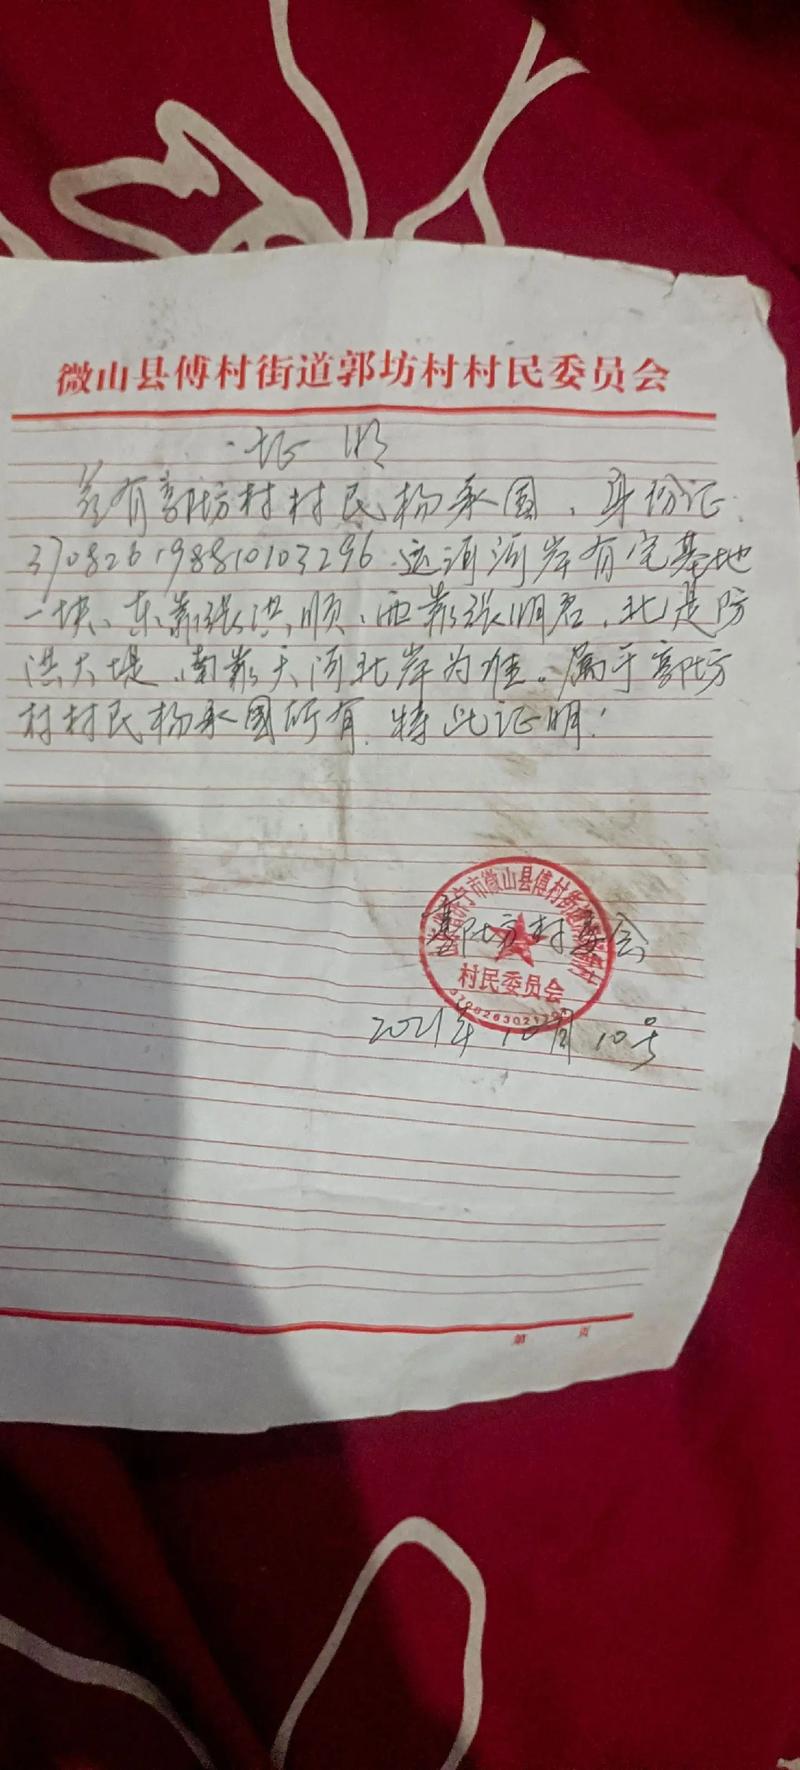 微山县傅村街道郭坊村村民委员会
证明
兹有郭坊村村民杨承国、身份证:
370826198810103296.运河河岸有宅基地
一块、东靠张洪顺、西靠张明启、北是防
洪大堤、南靠天河北岸为准。属于郭坊
村村民杨承国所有.特此证明!
济宁市微山县傅村街道
郭坊村委会
村民委员会
2021年10月10号
第 页